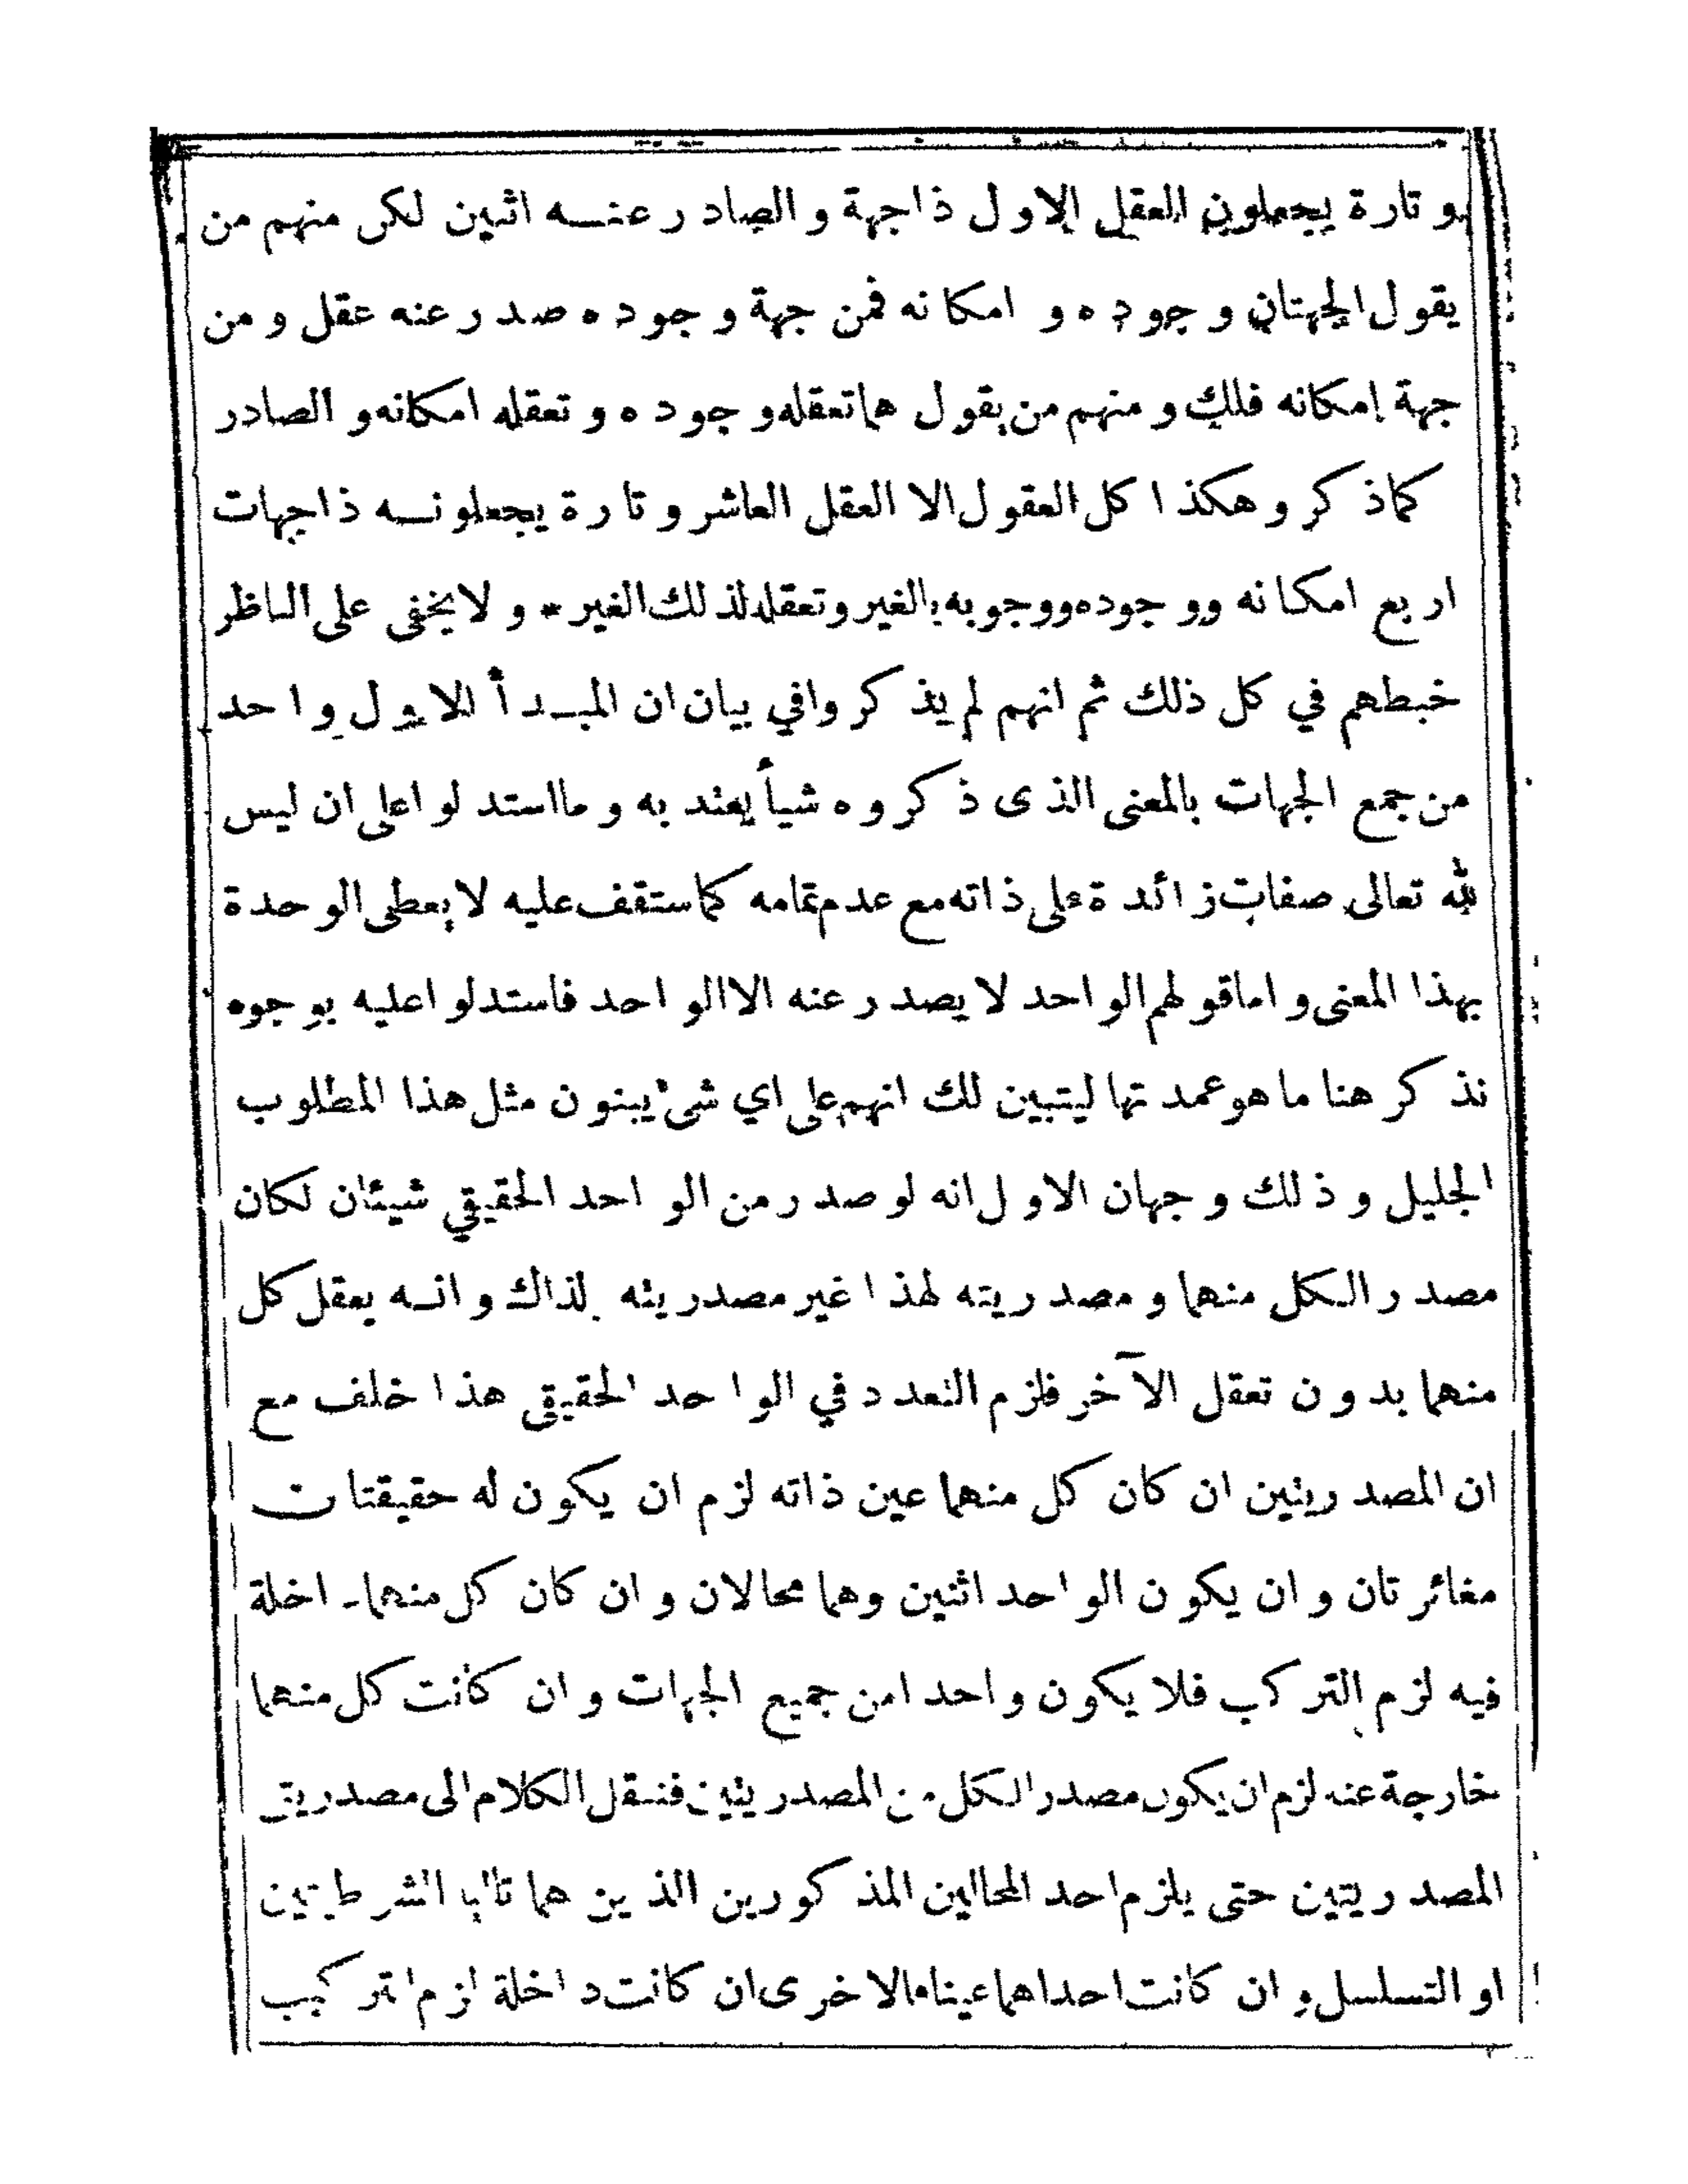 و تارة يجعلون العقل الاول ذاجهة و الصادر عنه اثنين لكن منهم من
يقول الجهتان وجوده و امكانه فمن جهة وجوده صدر عنه عقل و من
جهة إمكانه فلك و منهم من يقول هما تعقله وجوده و تعقله امكانه و الصادر
كما ذكر و هكذا كل العقول الا العقل العاشر و تارة يجعلونه ذاجهات
اربع امكانه ووجوده ووجوبه بالغير و تعقله لذلك الغير * و لا يخفى على الناظر
خبطهم في كل ذلك ثم انهم لم يذكروا في بيان ان المبدأ الاول واحد
من جمع الجهات بالمعنى الذى ذكروه شيأ يعتد به و ما استدلوا على ان ليس
لله تعالى صفات زائدة على ذاته مع عدم تمامه كما ستقف عليه لا يعطى الوحدة
بهذا المعنى و اما قولهم الواحد لا يصدر عنه الا الواحد فاستدلوا عليه بوجوه
نذكر هنا ما هو عمدتها ليتبين لك انهم على اي شئ يبنون مثل هذا المطلوب
الجليل و ذلك وجهان الاول انه لو صدر من الواحد الحقيقي شيئان لكان
مصدرا لكل منهما و مصدريته لهذا غير مصدريته لذاك و انه يعقل كل
منهما بدون تعقل الآخر فلزم التعدد في الواحد الحقيقى هذا خلف مع
ان المصدريتين ان كان كل منهما عين ذاته لزم ان يكون له حقيقتان
مغائرتان و ان يكون الواحد اثنين وهما محالان و ان كان كل منهما داخلة
فيه لزم التركب فلا يكون واحدا من جميع الجهات و ان كانت كل منهما
خارجة عنه لزم ان يكون مصدرا لكل من المصدريتين فننقل الكلام الى مصدريتى
المصدريتين حتى يلزم احد المحالين المذكورين الذين هما تاليا الشرطيتين
او التسلسل و ان كانت احداهما عينا فالاخرى ان كانت داخلة لزم التركيب